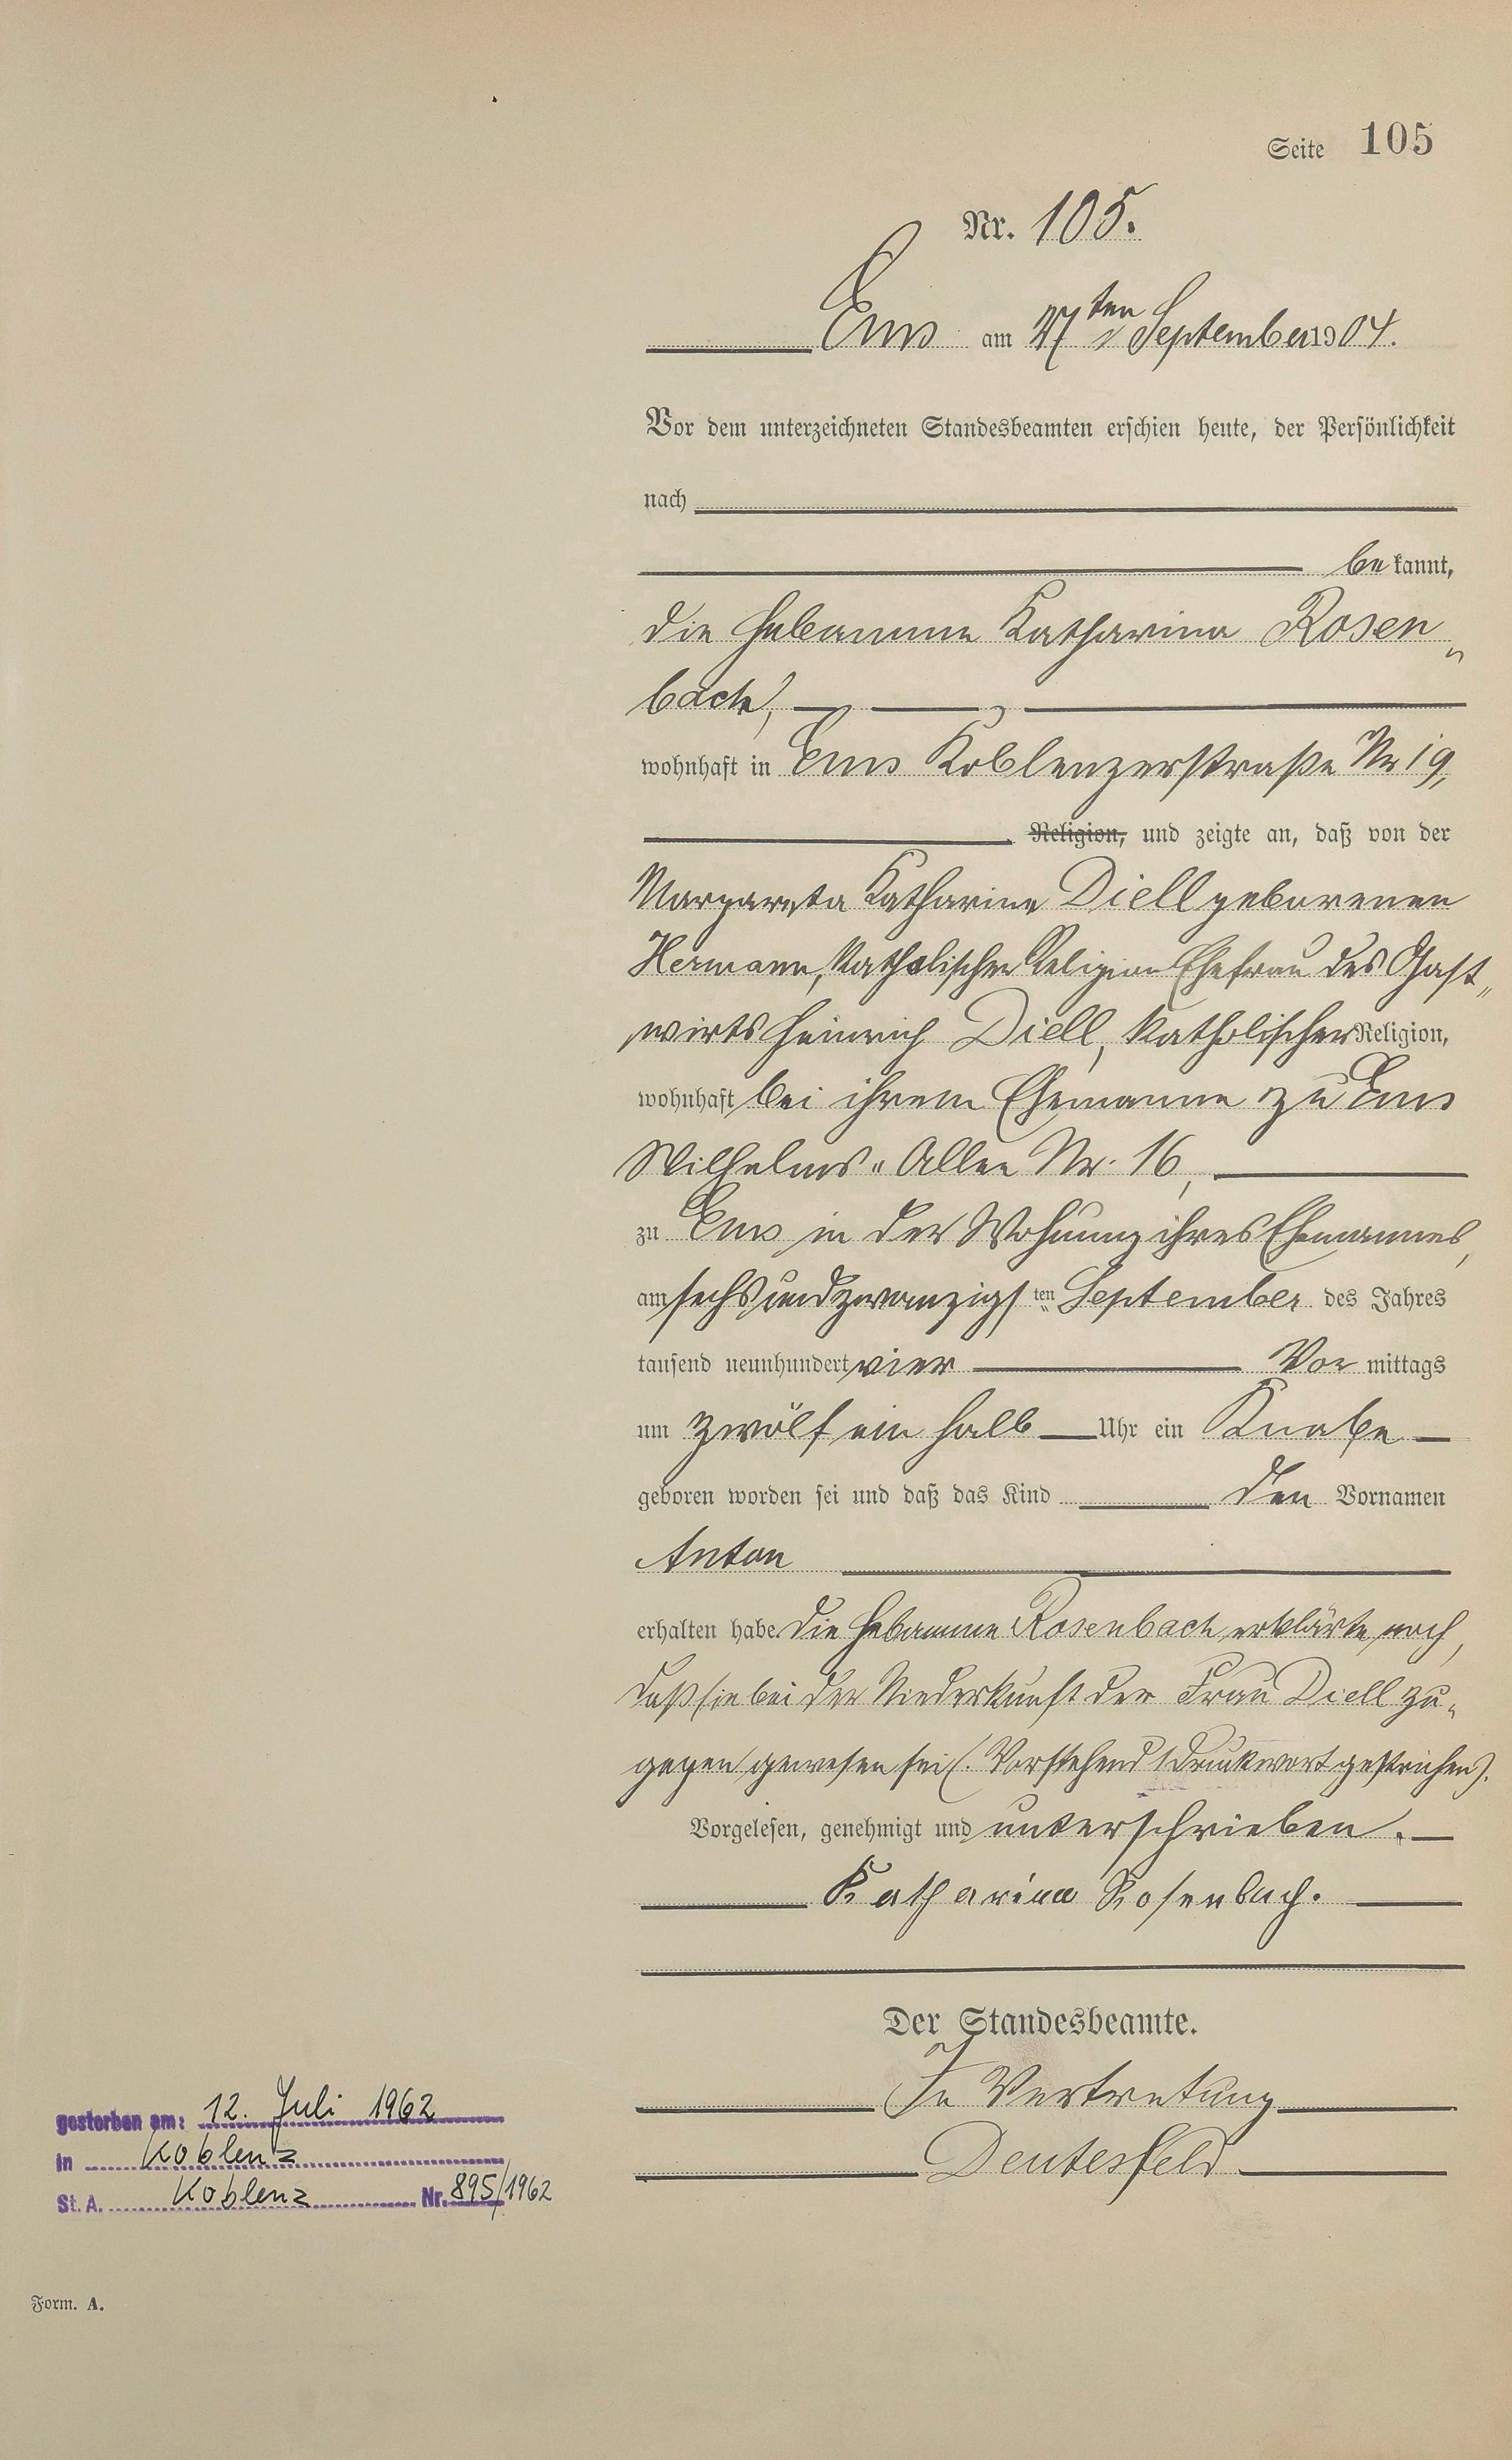 Seite 105
Nr. 105.
Ems am 27ten September 1904.
Vor dem unterzeichneten Standesbeamten erschien heute, der Persönlichkeit
nach
be kannt,
die Hebamme Katharina Rosen„
bach,
wohnhaft in Ems Koblenzerstraße Nr 19,
Religion, und zeigte an, daß von der
Margareta Katharina Diell geborenen
Hermann, katholischer Religion Ehefrau des Gast„
wirts Heinrich Diell, katholischer Religion,
wohnhaft bei ihrem Ehemanne zu Ems
Wilhelms„ Allee Nr. 16,
zu Ems in der Wohnung ihres Ehemannes,
am sechsundzwanzigsten September des Jahres
tausend neunhundert vier Vor mittags
um zwölf ein halb Uhr ein Knabe
geboren worden sei und daß das Kind den Vornamen
Anton
erhalten habe. Die Hebamme Rosenbach erklärte noch,
daß sie bei der Niederkunft der Frau Diell zu„
gegen gewesen sei (. Vorstehend 1 Druckwort gestrichen).
Vorgelesen, genehmigt und unterschrieben.
Katharina Rosenbach.
Der Standesbeamte.
In Vertretung
Deutesfeld
gestorben am: 12. Juli 1962
in Koblenz
St. A. Koblenz Nr. 895/1962
Form. A.